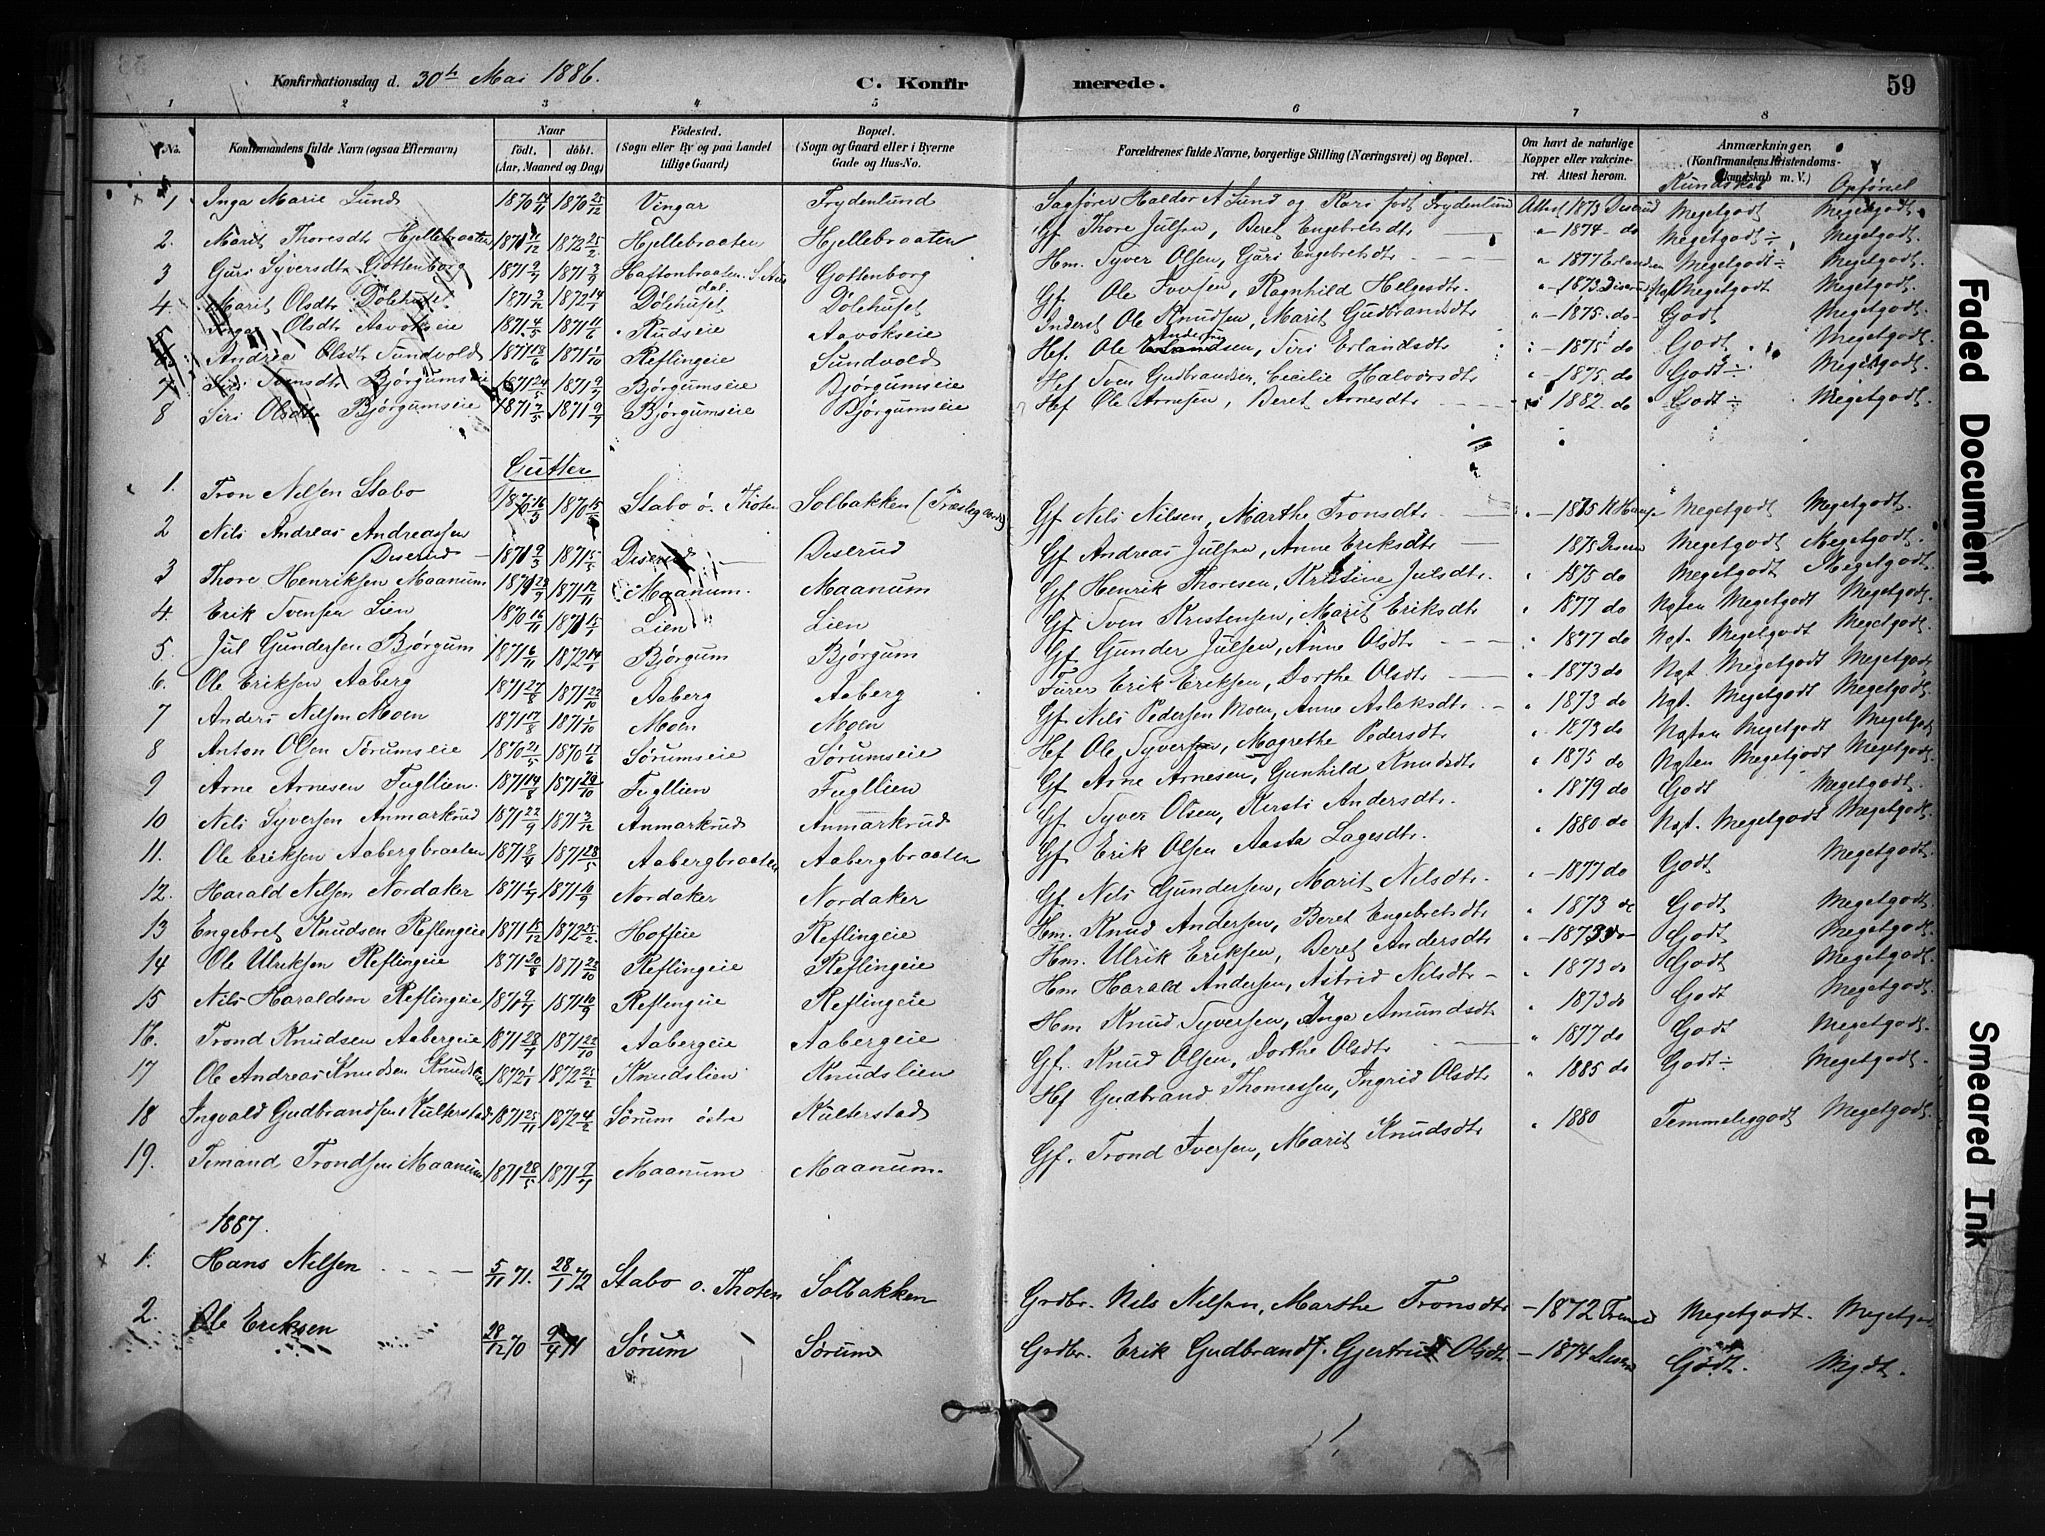 Konfirmationsdag d. 30th Mai 1886. C. Konfirmerede. 59
1 2 3 4 5 6 7 8
No. Konfirmandens fulde Navn (ogsaa Efternavn) Naar født. døbt. (Aar, Maaned og Dag) Fødested. (Sogn eller By og paa Landet tillige Gaard) Bopæl. (Sogn og Gaard eller i Byerne Gade og Hus-No. Forældrenes fulde Navne, borgerlige Stilling (Næringsvei) og Bopæl. Om havt de naturlige Kopper eller vaccineret. Attest herom. Anmærkninger. (Konfirmandens Kristendoms-Kundskab m. V.)
Kundskab Opførsel
1 Inga Marie Lund 1870 14/11 1870 25/12 Vingar Frydenlund Sagfører Haldor A Lund og Kari født Frydenlund Attest 1873 Diserud Megetgodt Megetgodt.
2. Marit Thoresdtr Hjellebraaten 1871 11/12 1872 25/2 Hjellebraaten Hjellebraaten Gf Thore Julsen, Beret Engebretsdtr " - 1874 - do Megetgodt ÷ Megetgodt.
3 Guri Syversdtr Gottenborg 1871 9/7 1871 3/9 Haftonbraaten. S. Aurdal. Gottenborg Hm. Syver Olsen, Guri Engebretsdtr " 1877 Erlandsen Megetgodt ÷ Megetgodt.
4. Marit Olsdtr Dølehuset 1871 3/12 1872 14/1 Dølehuset Dølehuset Gf Ole Iversen, Ragnhild Helgesdtr " - 1873 Diserud Ngt Megetgodt Megetgodt.
5 Inga Olsdtr Aavokseie 1871 4/5 1871 11/6 Rudseie Aavokseie Inderst Ole Knudsen, Marit Gudbrandsdtr " - 1875 - do - Godt Megetgodt
6 Andrea Olsdtr Sundvold 1871 18/6 1871 1/10 Reflingeie Sundvold Hef. Ole Andersen, Siri Erlandsdtr - 1875 do Godt Megetgodt.
7 Siri Svensdtr Bjørgumseie 1871 24/5 1871 9/7 Bjørgumseie Bjørgumseie Hef Sven Gudbrandsen, Cecilie Halvorsdtr - 1875. do Godt ÷ Megetgodt.
8 Siri Olsdtr Bjørgumseie 1871 7/5 1871 9/7 Bjørgumseie Bjørgumseie Hef Ole Arnesen, Beret Arnesdtr 1882. do Godt ÷ Megetgodt.
Gutter
1. Tron Nilsen Stabo 1870 16/3 1870 15/5 Stabo ø. Thoten Solbakken Gf Nils Nilsen, Marthe Tronsdtr " - 1875 Megetgodt Megetgodt.
2 Nils Andreas Andreassen
Diserud - 1871 9/3 1871 Diserud Diserud Gf Andreas Julsen, Anne Eriksdtr 1875 Diserud Megetgodt Megetgodt.
3 Thore Henriksen Maanum 1871 1871 12/11 Maanum. Maanum Gf Henrik Thoresen, Kristine Julsdtr. " 1875 do Megetgodt Megetgodt.
4. Erik Svensen Lien 1870 16/11 1871 Lien Lien Gf Sven Kristensen, Marit Eriksdtr " 1877 do Ngten Megetgodt Megetgodt.
5. Jul Gundersen Bjørgum 1871 6/11 1872 14/1 Bjørgum Bjørgum Gf Gunder Julsen, Anne Olsdtr " 1877 do Ngt. Megetgodt Megetgodt.
6. Ole Eriksen Aaberg 1871 27/8 1871 22/10 Aaberg Aaberg Furer Erik Eriksen, Dorthe Olsdtr " 1873 do Ngt. Megetgodt Megetgodt
7 Anders Nilsen Moen 1871 17/8 1871 1/10 Moen Moen Gf. Nils Pedersen Moen, Anne Aslaksdtr. " 1873 do Ngt. Megetgodt Megetgodt.
8 Anton Olsen Sørumseie 1870 21/5 1870 Sørumseie Sørumseie Hef Ole Syversen, Magrethe Pedersdtr. " 1873 do Ngten Megetgodt Megetgodt
9 Arne Arnesen Fugllien. 1871 14/8 1871 29/10 Fugllien Fugllien Gf Arne Arnesen, Gunhild Knudsdtr " 1875 do Ngten Megetgodt Megetgodt.
10 Nils Syversen Anmarkrud 1871 22/9 1871 3/12 Anmarkrud Anmarkrud Gf Syver Olsen, Kersti Andersdtr. " 1879 do Godt Megetgodt.
11. Ole Eriksen Aabergbraaten 1871 8/4 1871 28/5 Aabergbraaten Aabergbraaten Gf Erik Olsen Aasta Lagesdtr. " 1880 do Ngt. Megetgodt Megetgodt.
12. Harald Nilsen Nordaker 1871 1871 10/9 Nordaker Nordaker Gf Nils Gundersen, Marit Nilsdtr. " - 1877 do Godt Megetgodt.
13 Engebret Knudsen Reflingeie 1871 15/12 1872 25/2. Hoffeie Reflingeie Hm. Knud Andersen, Beret Engebretsdtr " 1873 do Godt Megetgodt.
14 Ole Ulriksen Reflingeie 1871 20/8 1871 22/10 Reflingeie Reflingeie Hm. Ulrik Eriksen, Beret Andersdtr " - 1873 do - Godt Megetgodt.
15 Nils Haraldsen Reflingeie 1871 9/7 1871 10/9 Reflingeie Reflingeie Hm Harald Andersen, Astrid Nilsdtr - " 1873 do Godt Megetgodt.
16. Trond Knudsen Aabergeie 1871 28/7 1871 22/10 Aabergeie Aabergeie Hm Knud Syversen, Inga Amundsdtr " 1873 do Godt Megetgodt.
17 Ole Andreas Knudsen Knudslien 1872 1/1 1872 25/2 Knudslien Knudslien Gf. Knud Olsen, Dorthe Olsdtr " 1877 do Godt Megetgodt.
18 Ingvald Gudbrandsen Kulterstad 1871 25/11 1872 4/2 Sørum østre Kulterstad Hf Gudbrand Thomassen, Ingrid Olsdtr " 1885 do Godt ÷ Megetgodt.
19. Temand Trondsen Maanum 1871 28/5 1871 9/7 Maanum Maanum. Gf. Trond Iversen, Marit Knudsdtr " 1880 Temmeliggodt Megetgodt.
1887.
1. Hans Nilsen 5/11 71. 28/1 72 Stabo ø. Thoten Solbakken Grdbr. Nils Nilsen, Marthe Tronsdtr - 1872 Megetgodt. Megetgodt
2. Ole Eriksen 28/12 70 9/4 71 Sørum Sørum Grdbr. Erik Gudbrands. Gjertrud Olsdtr - 1874 Diserud Godt. Mgdt.
Faded Document
Smeared Ink